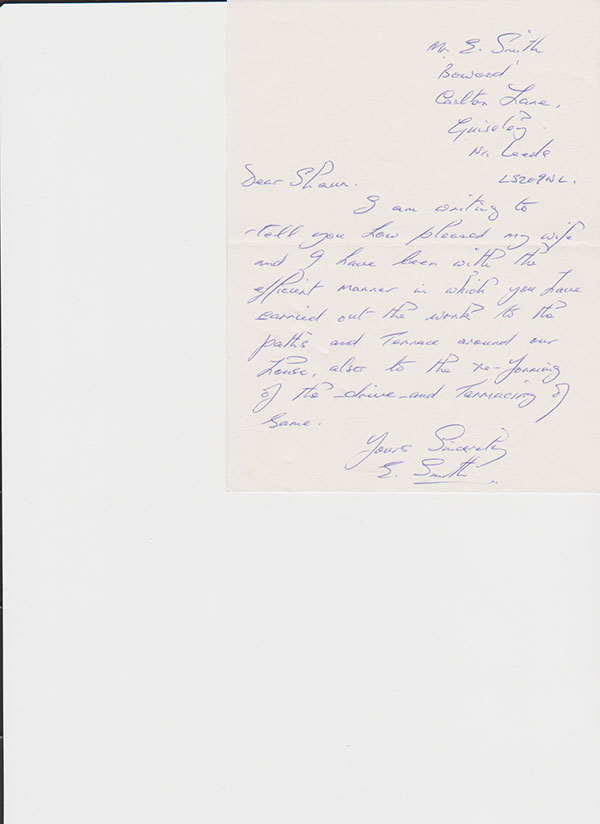 Mr. E. Smith
'Bowood'
Carlton Lane,
Guiseley.
Nr. Leeds
LS20 9NL.
Dear Shaun.
I am writing to
tell you how pleased my wife
and I have been with the
efficient manner in which you have
carried out the work to the
paths and Terrace around our
house, also to the re-forming
of the drive and Tarmacing of
same.
Yours Sincerely
E. Smith